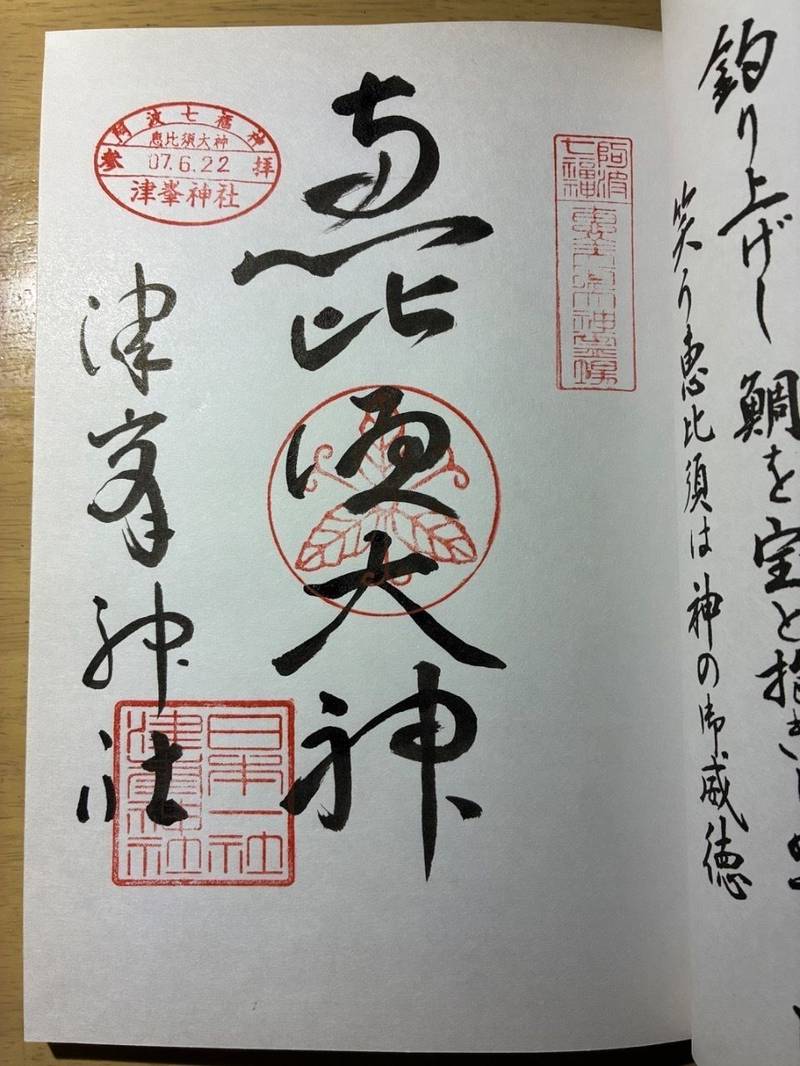 釣り上げし 鯛を宝と抱き
笑う恵比須は神の御威徳
阿波
七福
恵比須大神
津峯神社
阿波七福神
恵比須大神
参 07.6.22 拝
津峯神社
日本一社
津峯神社